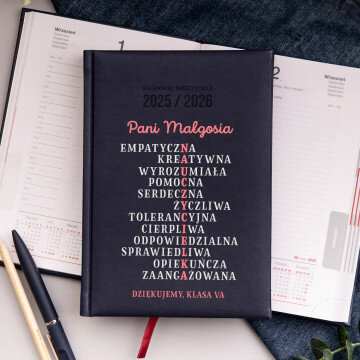 Wrzesień
1
KALENDARZ NAUCZYCIELA
2025 / 2026
Pani Małgosia
EMPATYCZNA
KREATYWNA
WYROZUMIAŁA
POMOCNA
SERDECZNA
ŻYCZLIWA
TOLERANCYJNA
CIERPLIWA
ODPOWIEDZIALNA
SPRAWIEDLIWA
OPIEKUŃCZA
ZAANGAŻOWANA
DZIĘKUJEMY, KLASA VA
2
Wrzesień